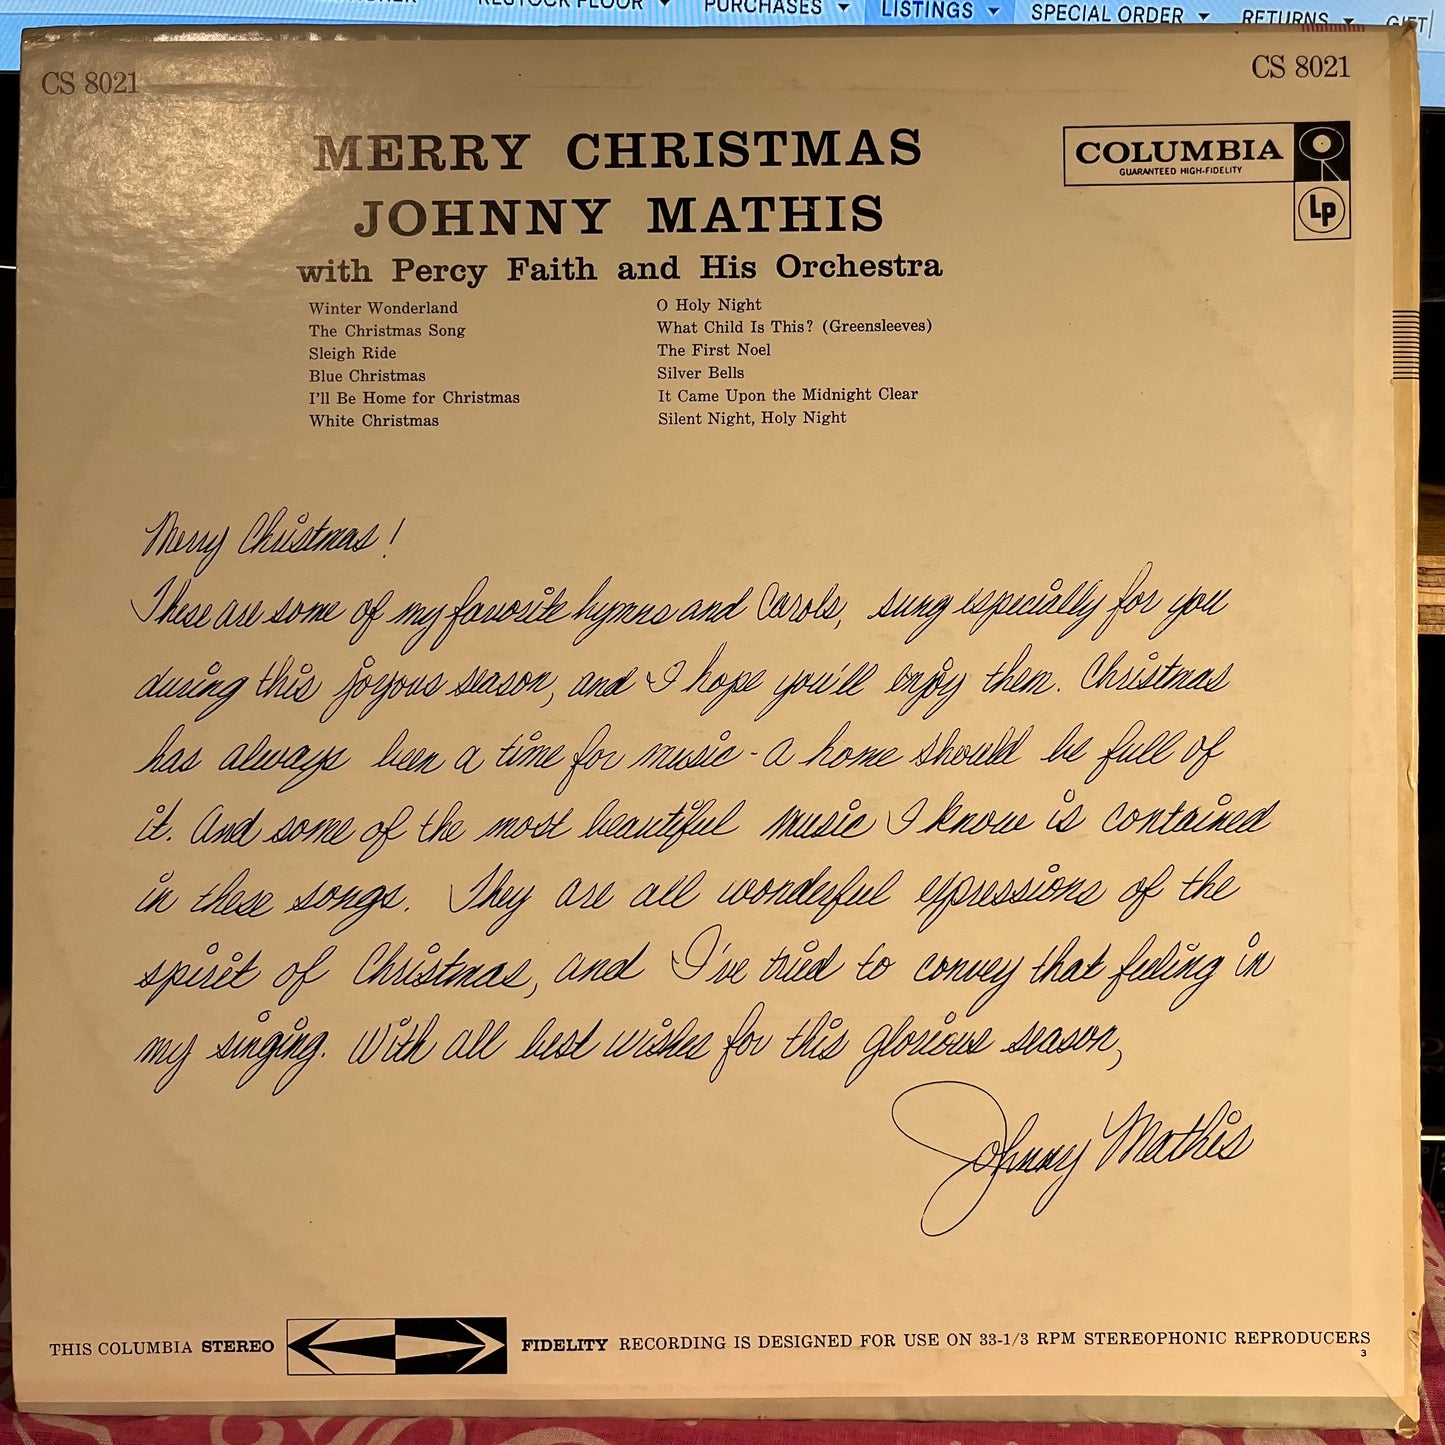 RESTOCK FLOOR PURCHASES LISTINGS SPECIAL ORDER RETURNS
CS 8021
CS 8021
MERRY CHRISTMAS
JOHNNY MATHIS
with Percy Faith and His Orchestra
COLUMBIA
GUARANTEED HIGH-FIDELITY
Lp
Winter Wonderland
The Christmas Song
Sleigh Ride
Blue Christmas
I'll Be Home for Christmas
White Christmas
O Holy Night
What Child Is This? (Greensleeves)
The First Noel
Silver Bells
It Came Upon the Midnight Clear
Silent Night, Holy Night
Merry Christmas!
These are some of my favorite hymns and Carols, sung especially for you
during this joyous season, and I hope you'll enjoy them. Christmas
has always been a time for music - a home should be full of
it. And some of the most beautiful music I know is contained
in these songs. They are all wonderful expressions of the
spirit of Christmas, and I've tried to convey that feeling in
my singing. With all best wishes for this glorious season,
Johnny Mathis
THIS COLUMBIA STEREO FIDELITY RECORDING IS DESIGNED FOR USE ON 33-1/3 RPM STEREOPHONIC REPRODUCERS
3